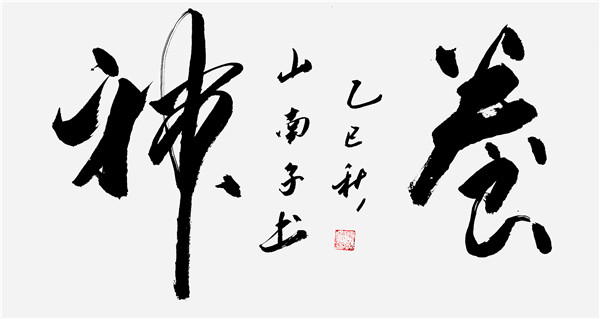 養神
乙巳秋
山南子书